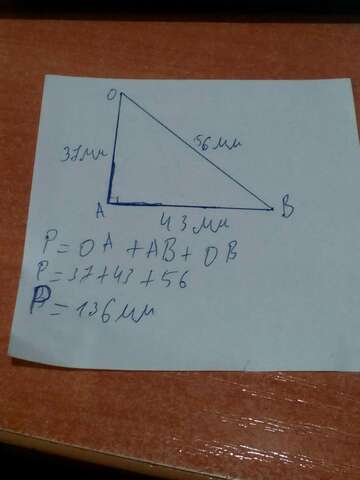 O
37мм
56мм
A
B
43мм
P=OA+AB+OB
P=37+43+56
P=136мм